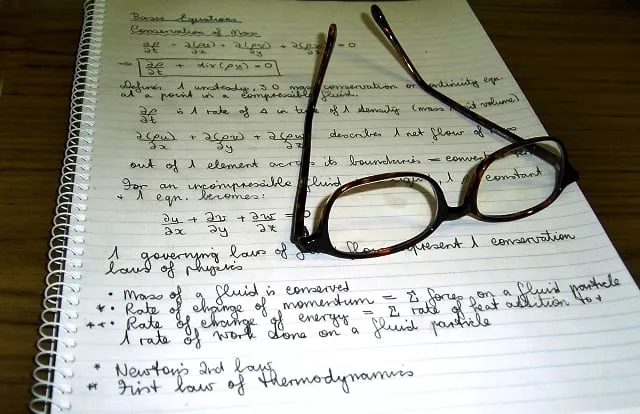 Basic Equations
Conservation of Mass
∂ρ/∂t - ∂(ρu)/∂x + ∂(ρv)/∂y + ∂(ρw)/∂z = 0
⇒ ∂ρ/∂t + div(ρu) = 0
Defines 1 unsteady, 3D mass conservation or continuity eqn.
at a point in a compressible fluid.
∂ρ/∂t is 1 rate of Δ in time of 1 density (mass volume)
∂(ρu)/∂x + ∂(ρv)/∂y + ∂(ρw)/∂z describes 1 net flow of
out of 1 element across its boundaries =
For an uncompressible fluid 1 constant
+ 1 eqn. becomes:
∂u/∂x + ∂v/∂y + ∂w/∂z = 0
1 governing laws of flow represent 1 conservation
laws of physics
· Mass of a fluid is conserved
*· Rate of change of momentum = Σ forces on a fluid particle
**· Rate of change of energy = Σ rate of heat addition to +
1 rate of work done on a fluid particle
* Newton's 2nd law
** First law of thermodynamics